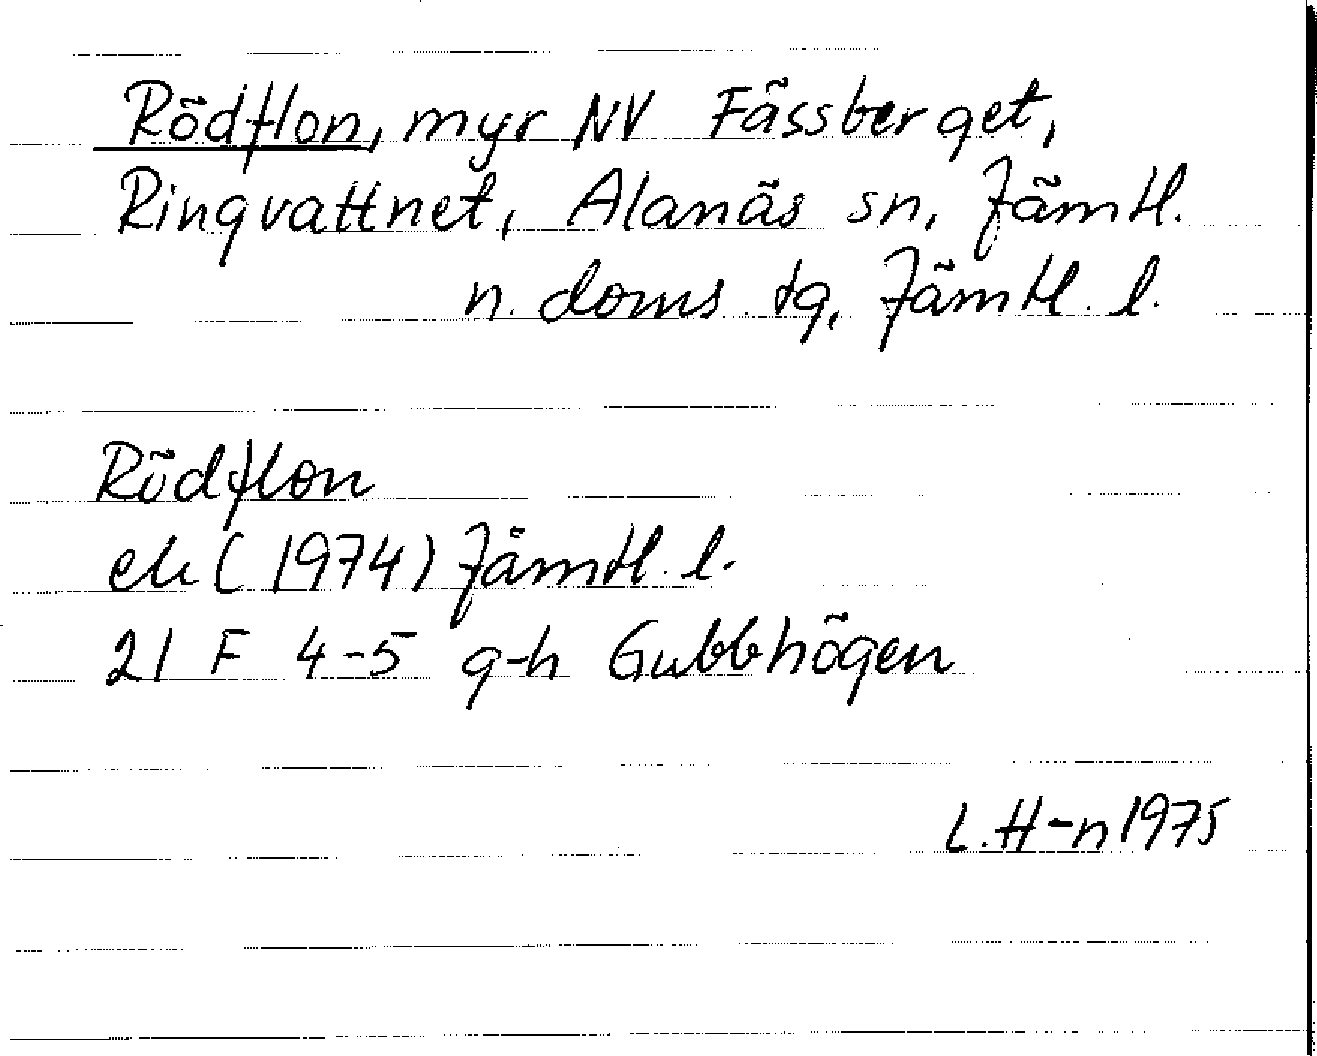 Rödflon, myr NV Fässberget,
Ringvattnet, Alanäs sn, Jämtl.
n. doms. tg, Jämtl. l.
Rödflon
ek (1974) Jämtl. l.
21 F 4-5 g-h Gubbhögen
L. H-n 1975